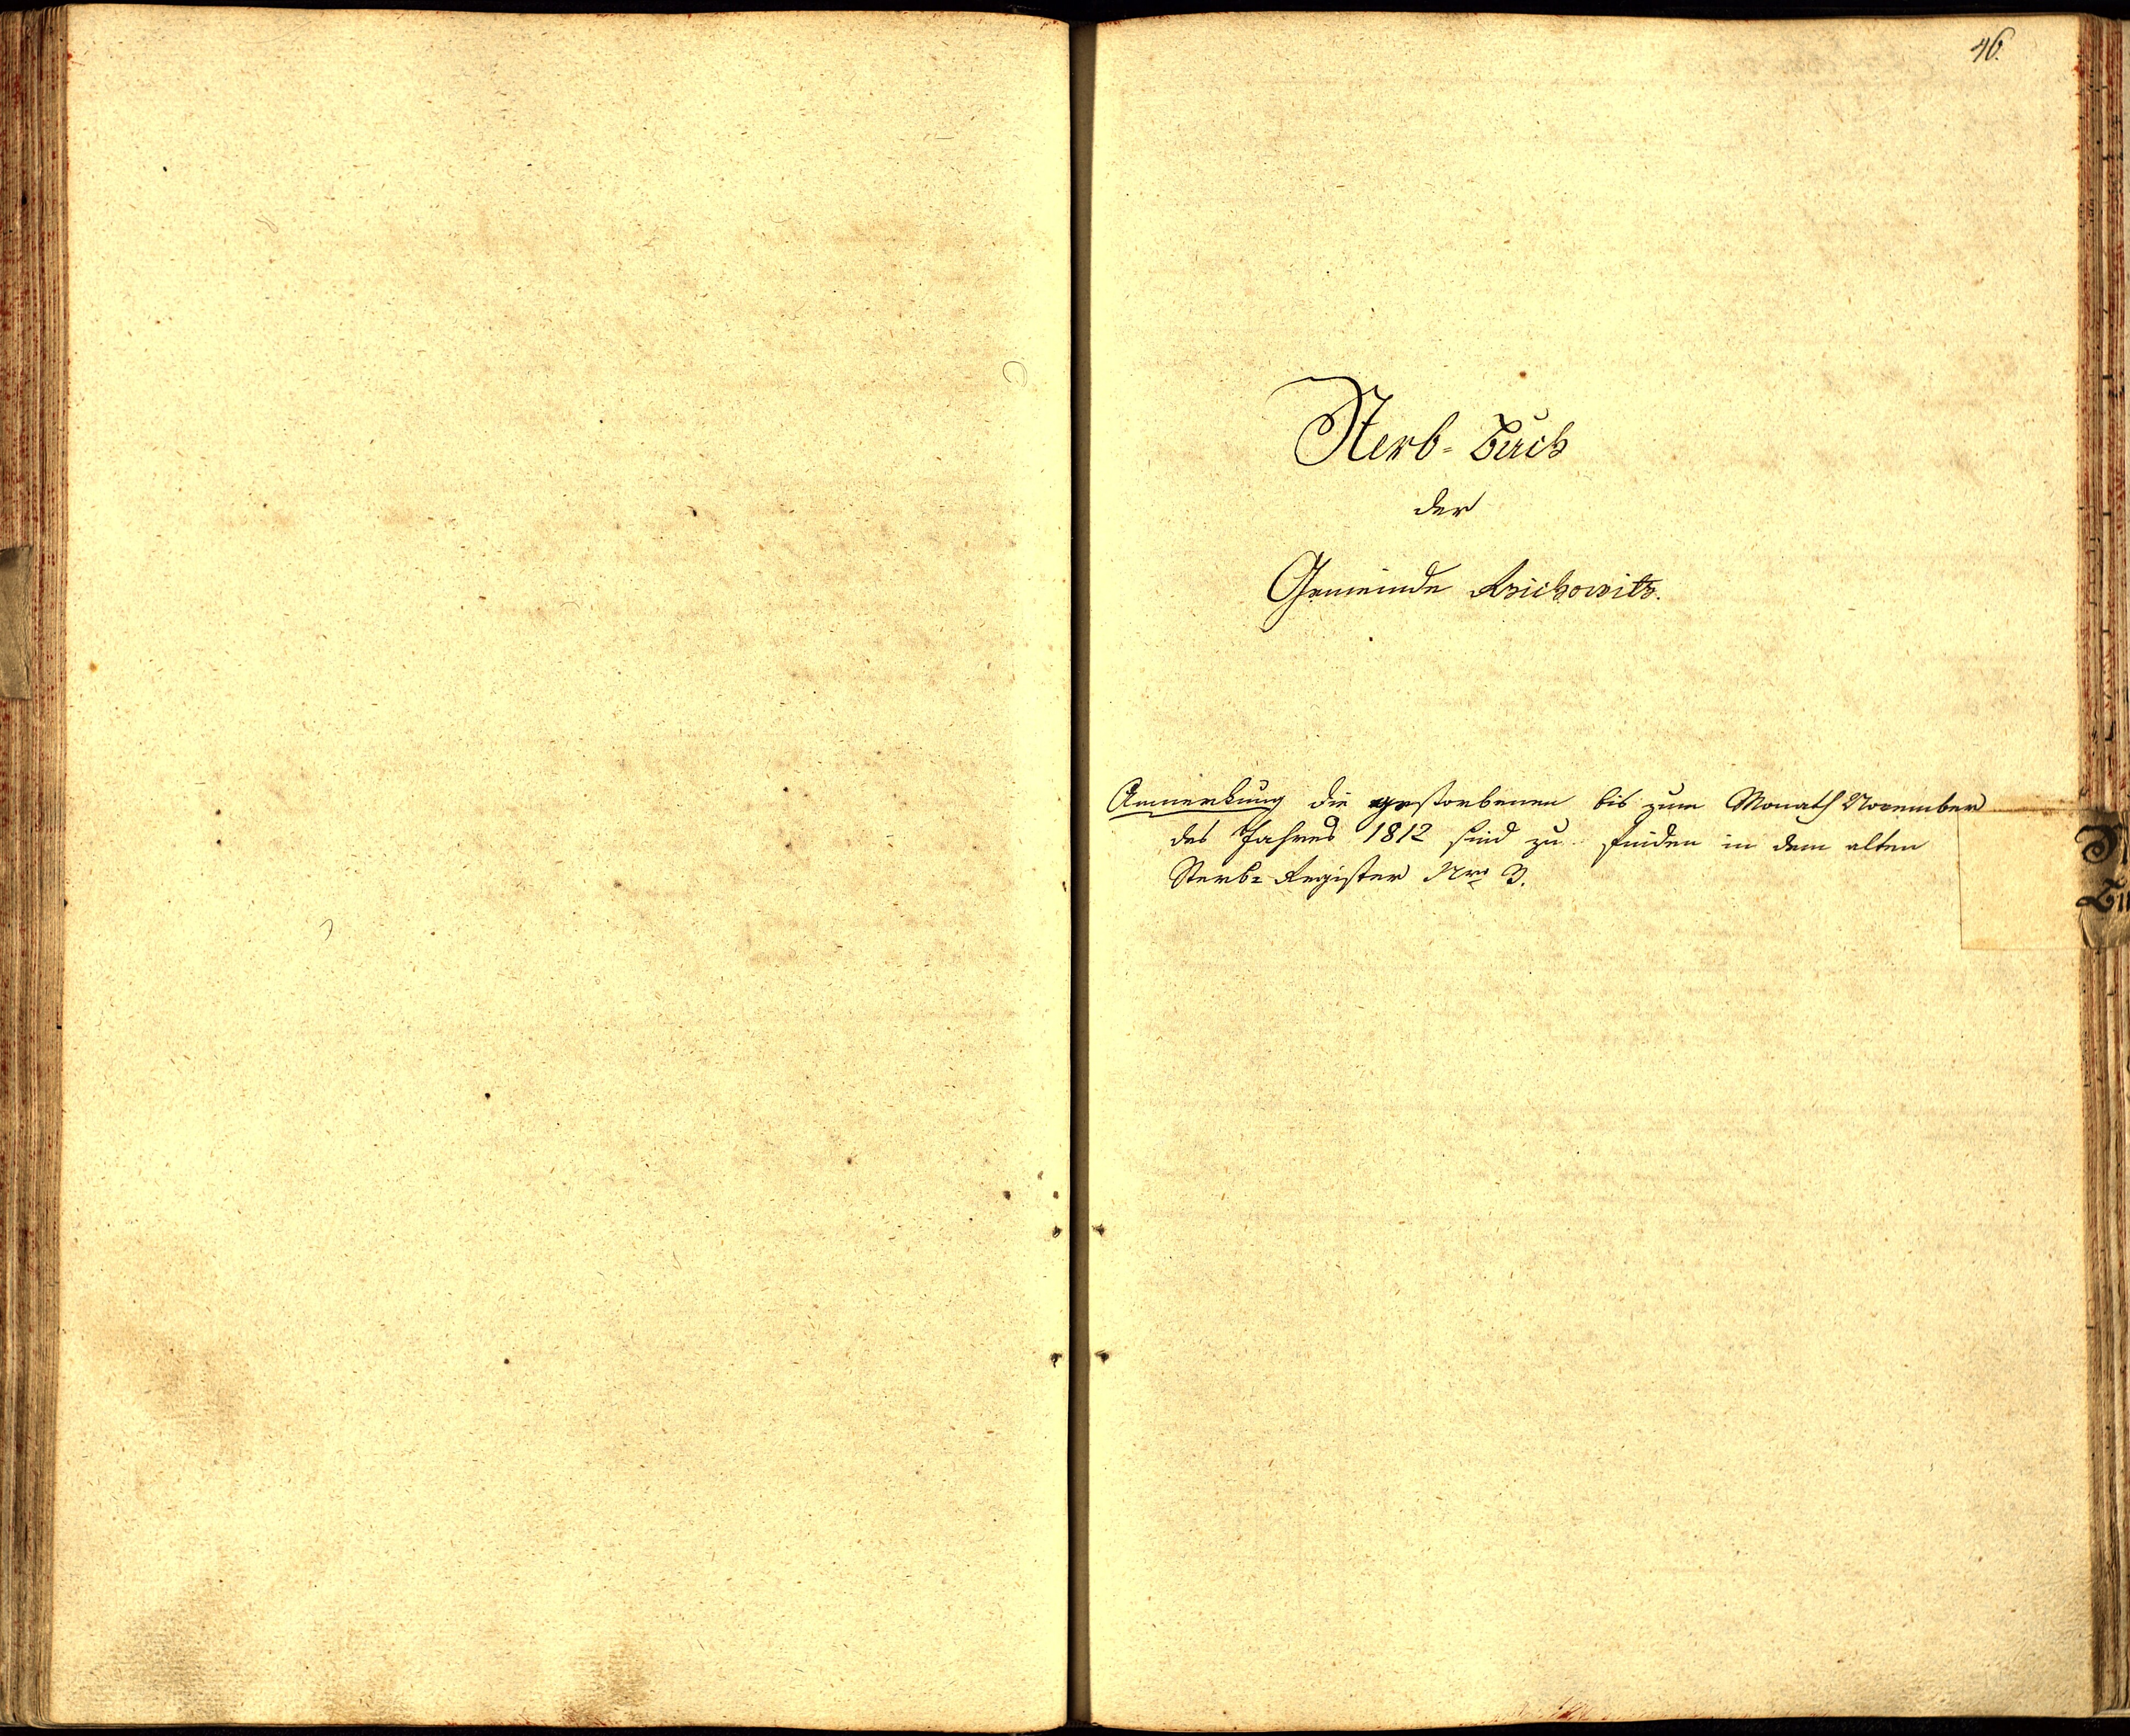 46.
Sterb=Buch
der
Gemeinde
Anmerkung die gestorbenen bis zum Monath November
des Jahres 1812 sind zu finden in dem alten
Sterb=Register Nro 3.